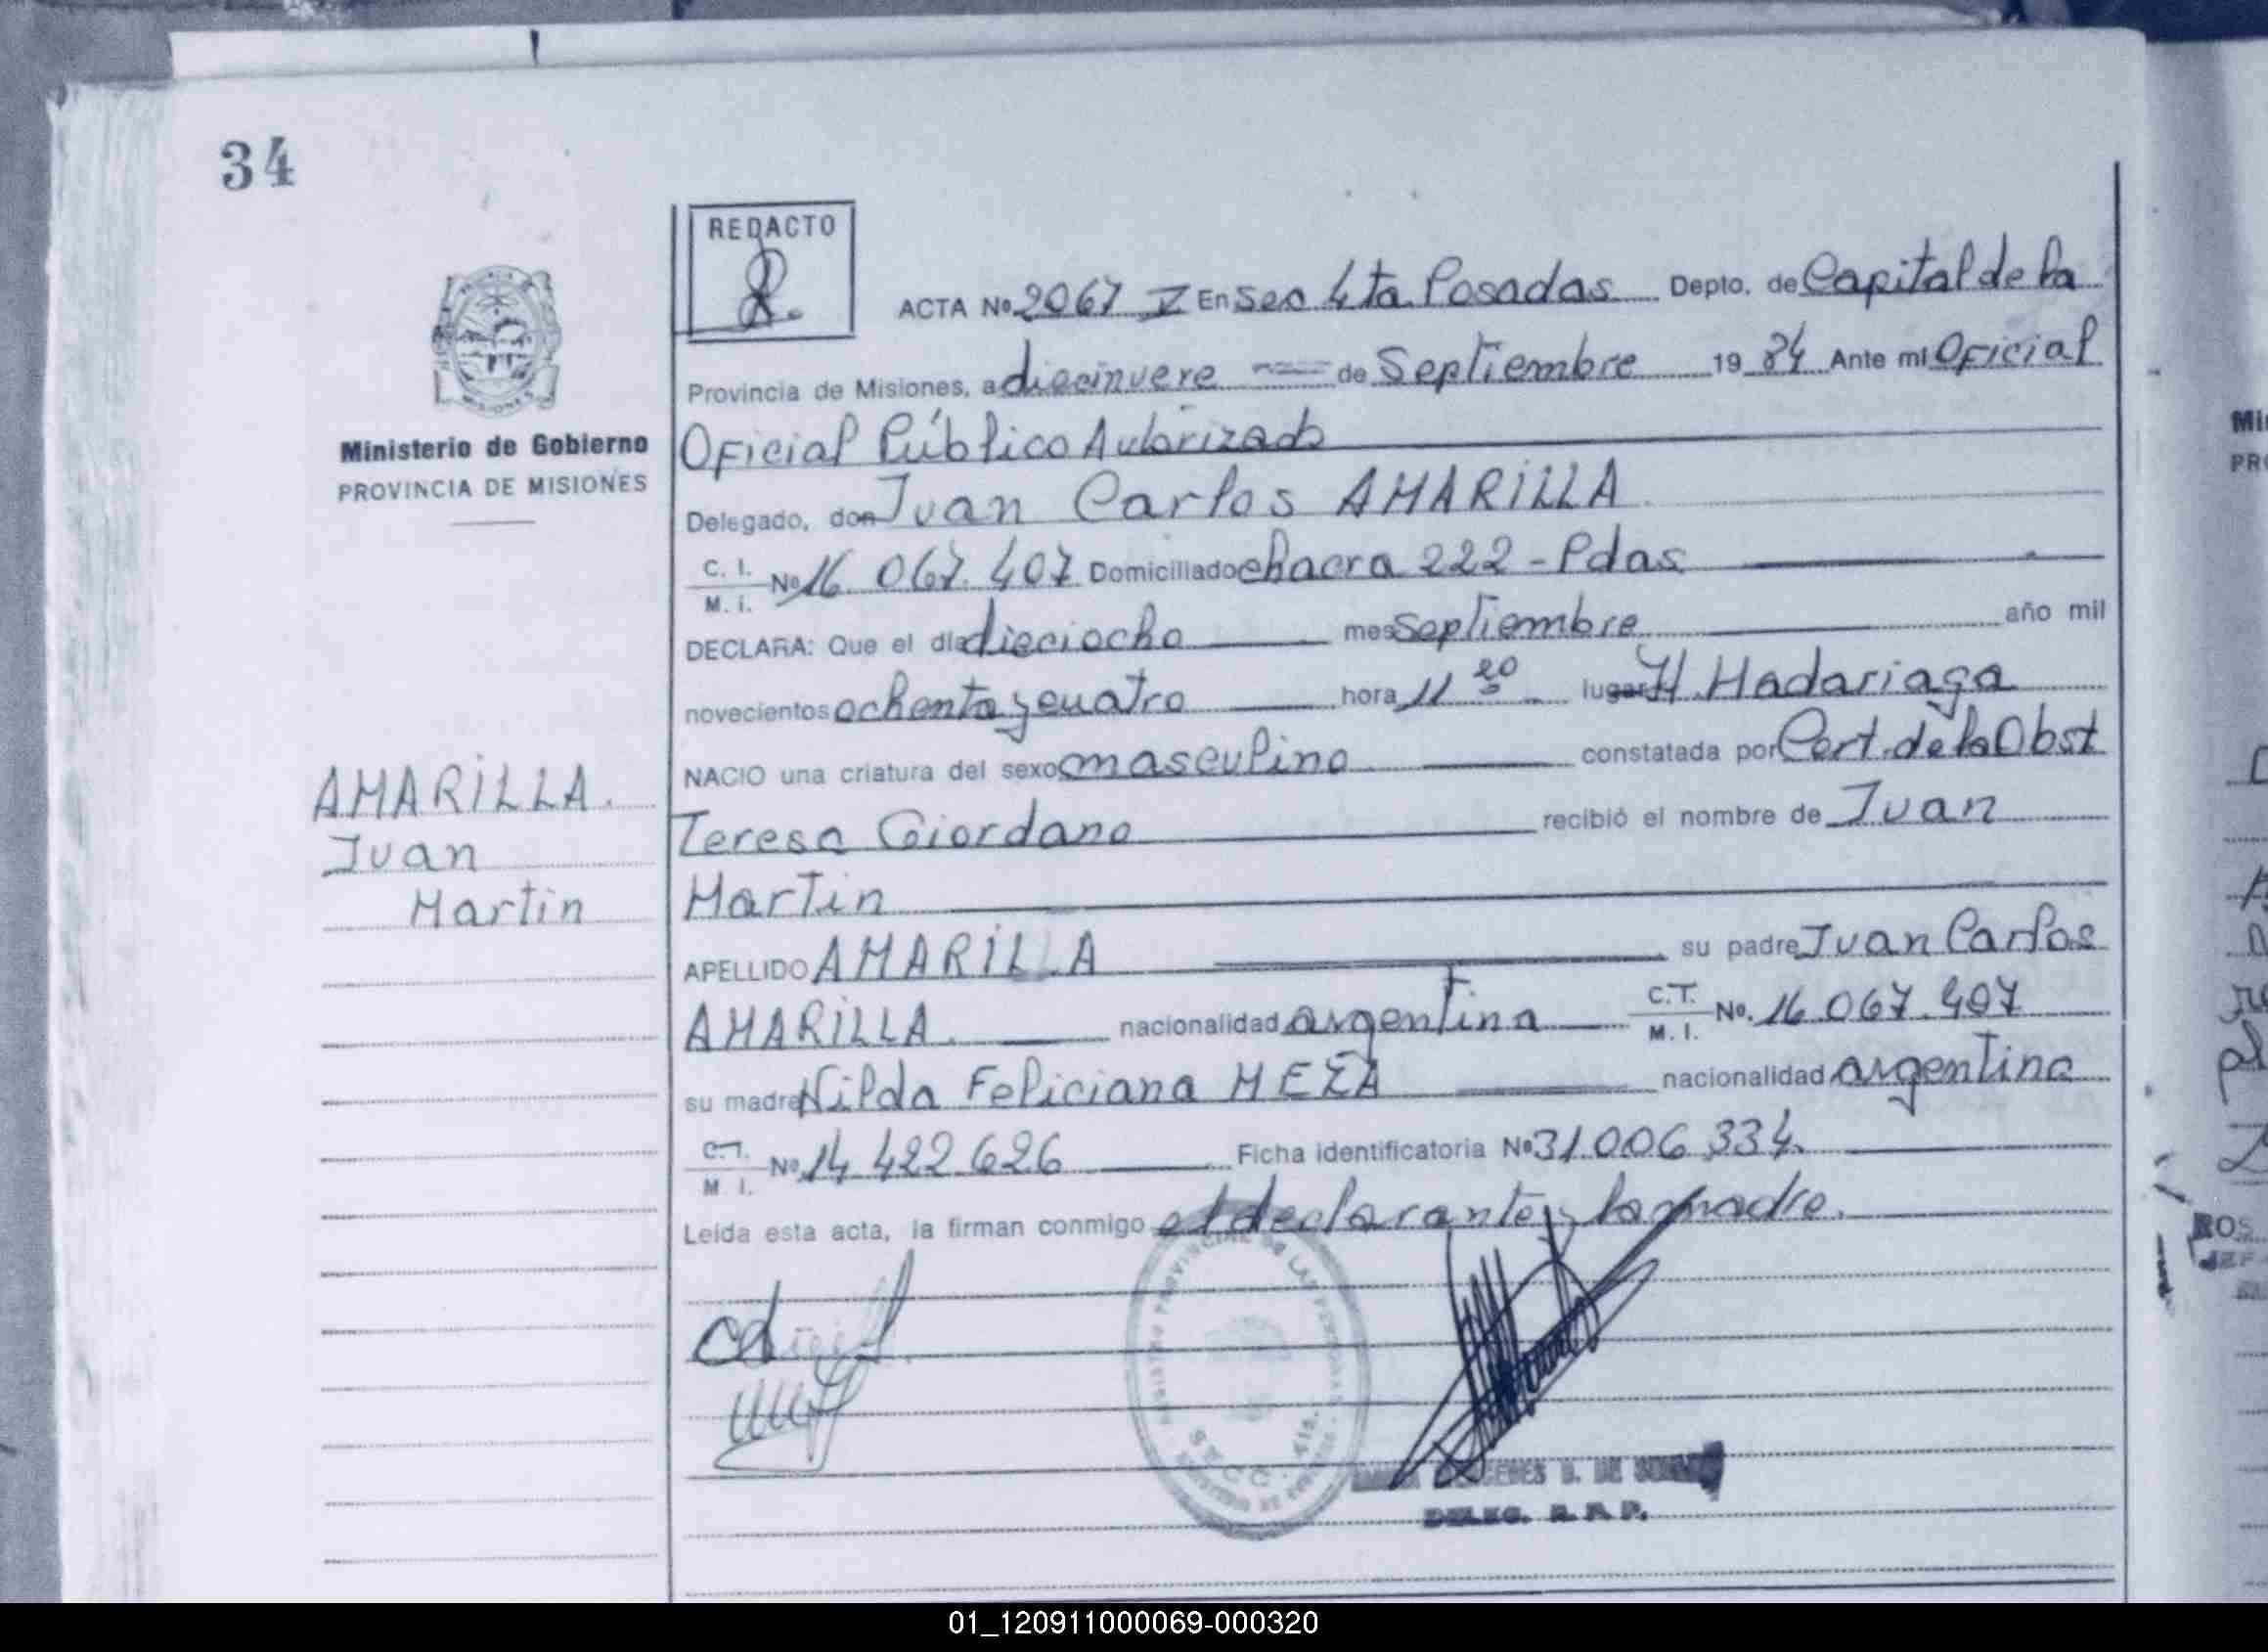 34
REDACTO
ACTA Nº 2067 V En Sec 4ta Posadas Depto. de Capital de la
Provincia de Misiones, a diecinueve de Septiembre 1984 Ante mí Oficial
Oficial Público Autorizado
Ministerio de Gobierno
PROVINCIA DE MISIONES
Delegado, don Juan Carlos AMARILLA
C. I.
M. I. Nº 16.067.407 Domiciliado chacra 222 - Pdas
DECLARA: Que el día dieciocho mes Septiembre año mil
novecientos ochenta y cuatro hora 11 20 lugar H. Madariaga
NACIO una criatura del sexo masculino constatada por Cert. de la Obst
Teresa Giordano recibió el nombre de Juan
Martin
AMARILLA.
Juan
Martin
APELLIDO AMARILLA su padre Juan Carlos
AMARILLA. nacionalidad argentina C.I.
M. I. No. 16.067.407
su madre Nilda Feliciana MEZA nacionalidad argentina
C.I.
M. I. Nº 14.422.626 Ficha identificatoria Nº 31.006.334.
Leída esta acta, la firman conmigo el declarante y la madre.
SECC. 4ta.
DELEG. R. P. P.
01_120911000069-000320